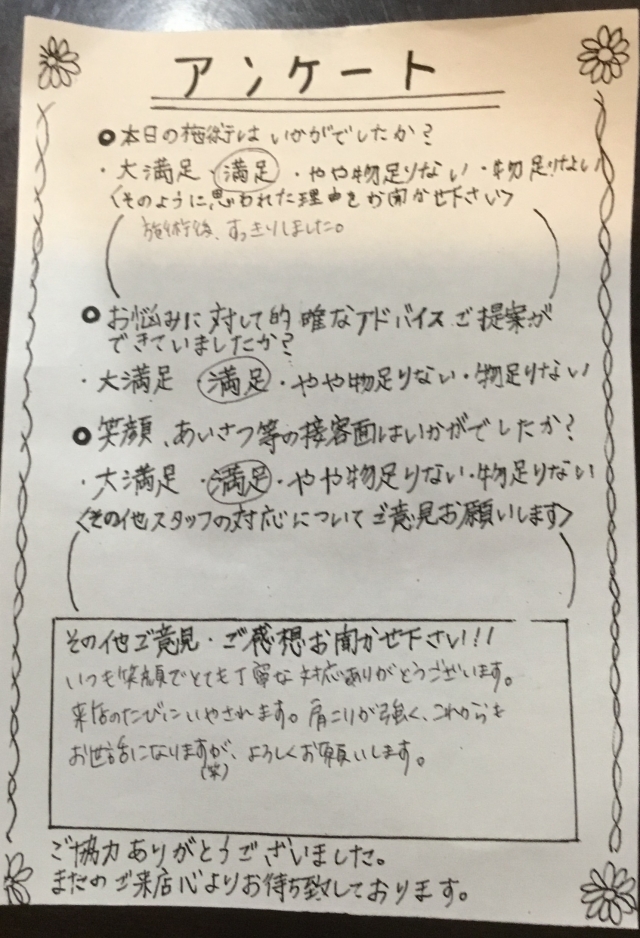 アンケート
●本日の施術はいかがでしたか?
・大満足・満足・やや物足りない・物足りない
〈そのように思われた理由をお聞かせ下さい〉
施術後、すっきりしました。
●お悩みに対して的確なアドバイスご提案が
できていましたか?
・大満足・満足・やや物足りない・物足りない
●笑顔、あいさつ等の接客面はいかがでしたか?
・大満足・満足・やや物足りない・物足りない
〈その他スタッフの対応についてご意見お願いします〉
その他ご意見・ご感想お聞かせ下さい!!!
いつも笑顔でとても丁寧な対応ありがとうございます。
来店のたびにいやされます。肩こりが強く、これからも
お世話になりますが、よろしくお願いします。
(笑)
ご協力ありがとうございました。
またのご来店心よりお待ち致しております。